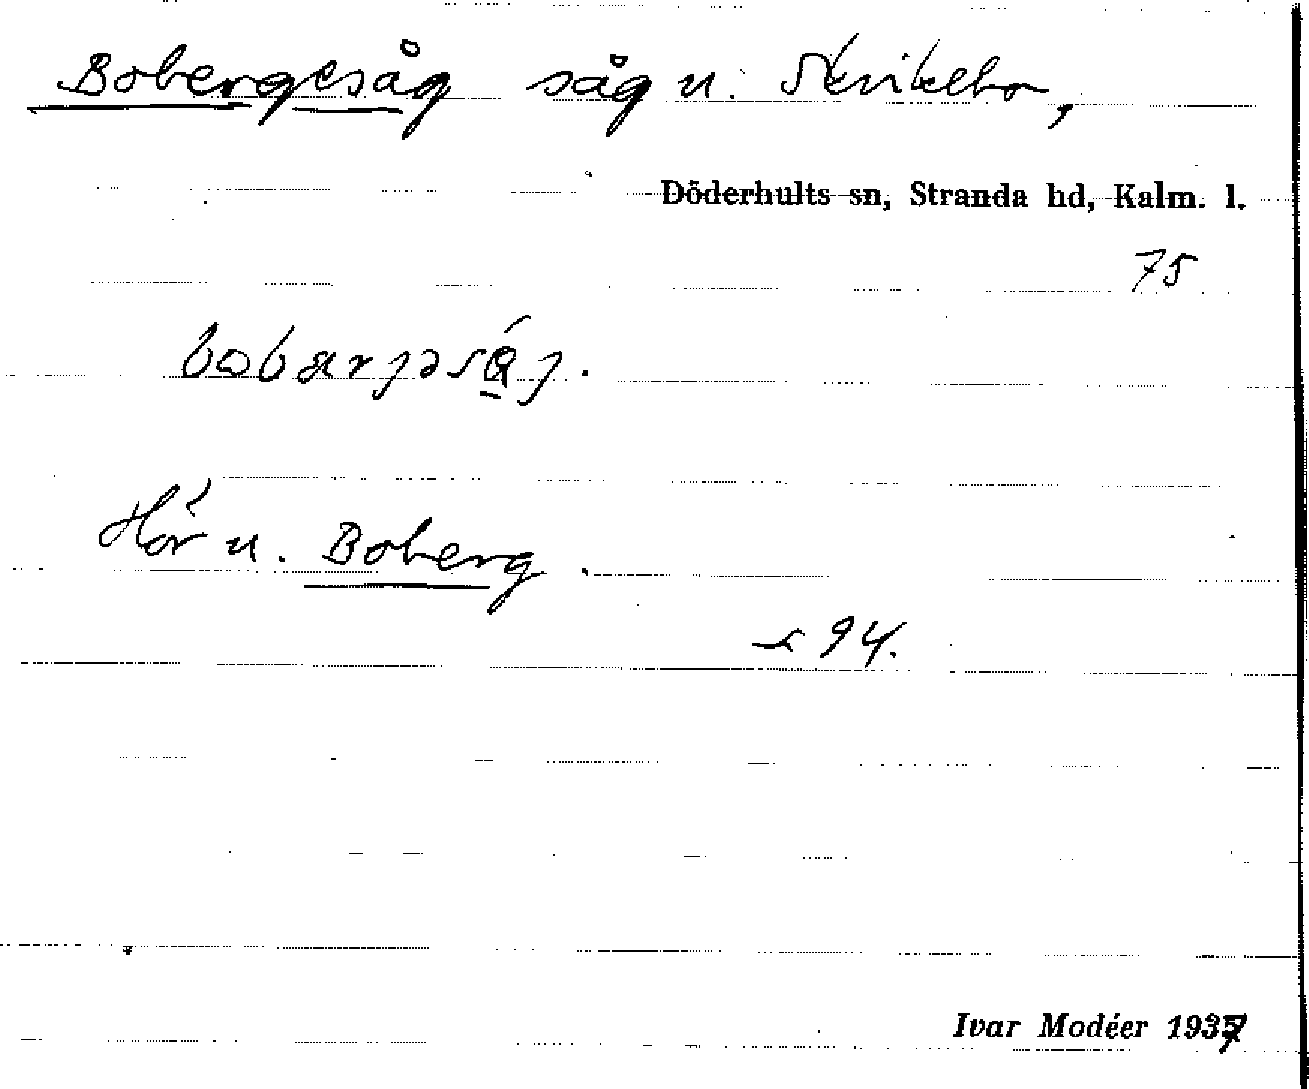 Bobergesåg såg u. Skrikebo,
Döderhults sn, Stranda hd, Kalm. l.
75
Hör u. Boberg.
94.
Ivar Modéer 1937